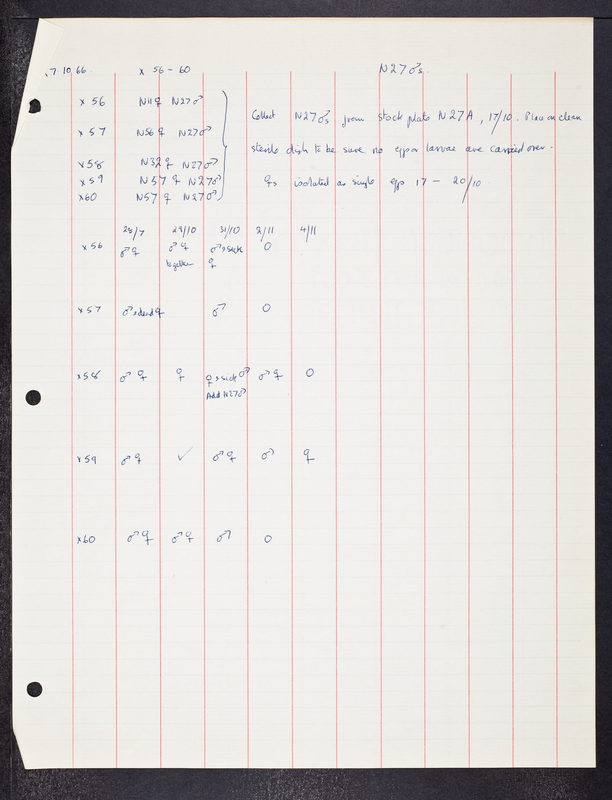 17.10.66. x 56-60 N27♂s.
x 56 N11♀ N27♂
Collect N27♂s from stock plate N27A, 17/10. Place on clean
x 57 N56♀ N27♂
sterile dish to be sure no eggs or larvae are carried over.
x58 N32♀ N27♂
x59 N57♀ N27♂
♀s isolated as single eggs 17 - 20/10
x60 N57♀ N27♂
28/7 29/10 31/10 2/11 4/11
x 56 ♂♀ ♂♀ ♂ + sick O
together ♀
x 57 ♂ + dead ♀ ♂ O
x58 ♂ ♀ ♀ ♀ + sick ♂ ♂ ♀ O
Add N27♂
x59 ♂ ♀ ✓ ♂ ♀ ♂ ♀
x60 ♂ ♀ ♂ ♀ ♂ O